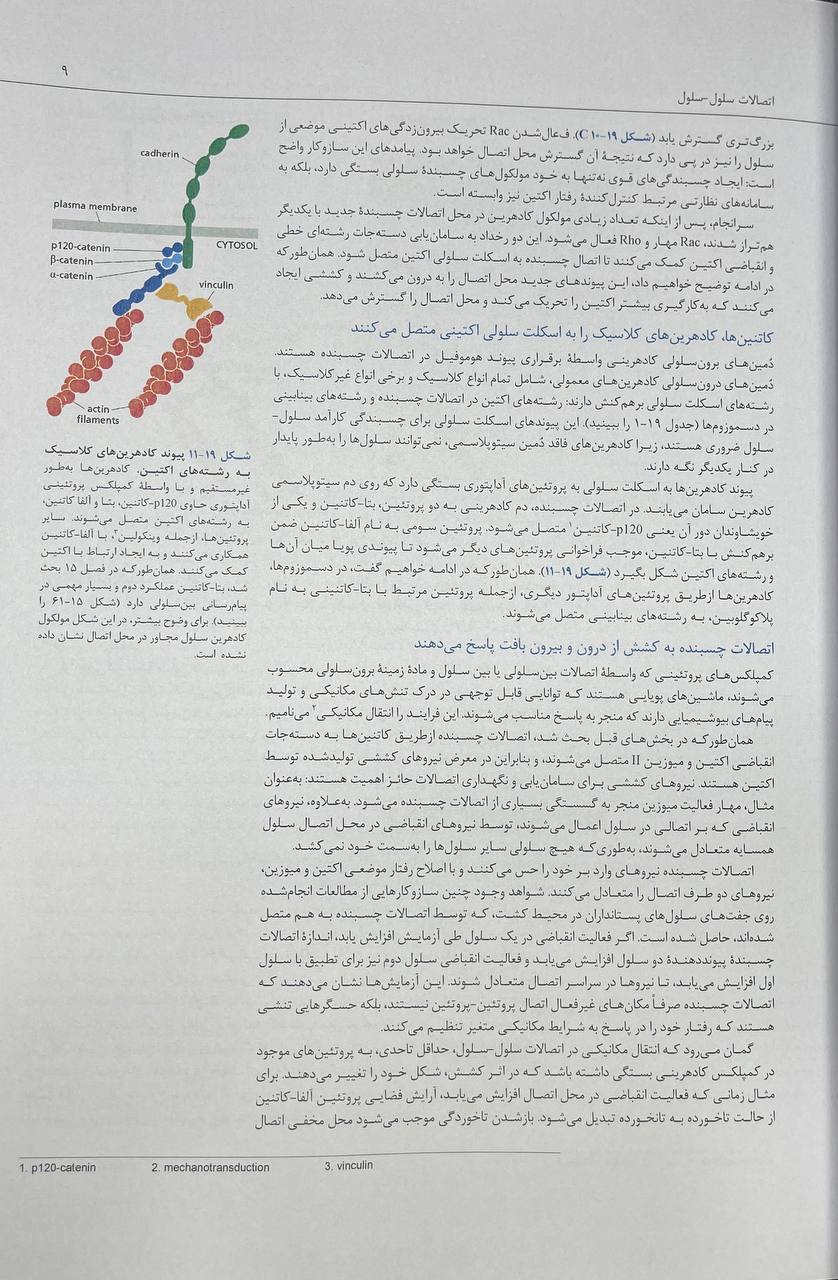 اتصالات سلول-سلول
۹
بزرگ‌تری گسترش یابد (شکل ۱۹-۱۰ C). فعال‌شدن Rac تحریک بیرون‌زدگی‌های اکتینی موضعی از
سلول را نیز در پی دارد که نتیجۀ آن گسترش محل اتصال خواهد بود. پیامدهای این سازوکار واضح
است: ایجاد چسبندگی‌های قوی نه‌تنها به خود مولکول‌های چسبندۀ سلولی بستگی دارد، بلکه به
سامانه‌های نظارتی مرتبط کنترل‌کنندۀ رفتار اکتین نیز وابسته است.
سرانجام، پس از اینکه تعداد زیادی مولکول کادهرین در محل اتصالات چسبندۀ جدید با یکدیگر
هم‌تراز شدند، Rac مهار و Rho فعال می‌شود. این دو رخداد به سامان‌یابی دسته‌جات رشته‌ای خطی
و انقباضی اکتین کمک می‌کنند تا اتصال چسبنده به اسکلت سلولی اکتین متصل شود. همان‌طورکه
در ادامه توضیح خواهیم داد، این پیوندهای جدید محل اتصال را به درون می‌کشند و کششی ایجاد
می‌کنند که به‌کارگیری بیشتر اکتین را تحریک می‌کند و محل اتصال را گسترش می‌دهد.
کاتنین‌ها، کادهرین‌های کلاسیک را به اسکلت سلولی اکتینی متصل می‌کنند
دُمین‌های برون‌سلولی کادهرینی واسطۀ برقراری پیوند هوموفیل در اتصالات چسبنده هستند.
دُمین‌های درون‌سلولی کادهرین‌های معمولی، شامل تمام انواع کلاسیک و برخی انواع غیرکلاسیک، با
رشته‌های اسکلت سلولی برهم‌کنش دارند: رشته‌های اکتین در اتصالات چسبنده و رشته‌های بینابینی
در دسموزوم‌ها (جدول ۱۹-۱ را ببینید). این پیوندهای اسکلت سلولی برای چسبندگی کارآمد سلول-
سلول ضروری هستند، زیرا کادهرین‌های فاقد دُمین سیتوپلاسمی، نمی‌توانند سلول‌ها را به‌طور پایدار
در کنار یکدیگر نگه دارند.
پیوند کادهرین‌ها به اسکلت سلولی به پروتئین‌های آداپتوری بستگی دارد که روی دم سیتوپلاسمی
کادهرین سامان می‌یابند. در اتصالات چسبنده، دم کادهرینی به دو پروتئین، بتا-کاتنین و یکی از
خویشاوندان دور آن یعنی p120-کاتنین۱ متصل می‌شود. پروتئین سومی به نام آلفا-کاتنین ضمن
برهم‌کنش با بتا-کاتنین، موجب فراخوانی پروتئین‌های دیگر می‌شود تا پیوندی پویا میان آن‌ها
و رشته‌های اکتین شکل بگیرد (شکل ۱۹-۱۱). همان‌طورکه در ادامه خواهیم گفت، در دسموزوم‌ها،
کادهرین‌ها ازطریق پروتئین‌های آداپتور دیگری، ازجمله پروتئین مرتبط با بتا-کاتنینی به نام
پلاکوگلوبین، به رشته‌های بینابینی متصل می‌شوند.
اتصالات چسبنده به کشش از درون و بیرون بافت پاسخ می‌دهند
کمپلکس‌های پروتئینی که واسطۀ اتصالات بین‌سلولی یا بین سلول و مادۀ زمینۀ برون‌سلولی محسوب
می‌شوند، ماشین‌های پویایی هستند که توانایی قابل توجهی در درک تنش‌های مکانیکی و تولید
پیام‌های بیوشیمیایی دارند که منجر به پاسخ مناسب می‌شوند. این فرایند را انتقال مکانیکی۲ می‌نامیم.
همان‌طورکه در بخش‌های قبل بحث شد، اتصالات چسبنده ازطریق کاتنین‌ها به دسته‌جات
انقباضی اکتین و میوزین II متصل می‌شوند، و بنابراین در معرض نیروهای کششی تولیدشده توسط
اکتین هستند. نیروهای کششی برای سامان‌یابی و نگهداری اتصالات حائز اهمیت هستند: به‌عنوان
مثال، مهار فعالیت میوزین منجر به گسستگی بسیاری از اتصالات چسبنده می‌شود. به‌علاوه، نیروهای
انقباضی که بر اتصالی در سلول اعمال می‌شوند، توسط نیروهای انقباضی در محل اتصال سلول
همسایه متعادل می‌شوند، به‌طوری‌که هیچ سلولی سایر سلول‌ها را به‌سمت خود نمی‌کشد.
اتصالات چسبنده نیروهای وارد بر خود را حس می‌کنند و با اصلاح رفتار موضعی اکتین و میوزین،
نیروهای دو طرف اتصال را متعادل می‌کنند. شواهد وجود چنین سازوکارهایی از مطالعات انجام‌شده
روی جفت‌های سلول‌های پستانداران در محیط کشت، که توسط اتصالات چسبنده به هم متصل
شده‌اند، حاصل شده است. اگر فعالیت انقباضی در یک سلول طی آزمایش افزایش یابد، اندازۀ اتصالات
چسبندۀ پیونددهندۀ دو سلول افزایش می‌یابد و فعالیت انقباضی سلول دوم نیز برای تطبیق با سلول
اول افزایش می‌یابد، تا نیروها در سراسر اتصال متعادل شوند. این آزمایش‌ها نشان می‌دهند که
اتصالات چسبنده صرفاً مکان‌های غیرفعال اتصال پروتئین-پروتئین نیستند، بلکه حسگرهایی تنشی
هستند که رفتار خود را در پاسخ به شرایط مکانیکی متغیر تنظیم می‌کنند.
گمان می‌رود که انتقال مکانیکی در اتصالات سلول-سلول، حداقل تاحدی، به پروتئین‌های موجود
در کمپلکس کادهرینی بستگی داشته باشد که در اثر کشش، شکل خود را تغییر می‌دهند. برای
مثال زمانی که فعالیت انقباضی در محل اتصال افزایش می‌یابد، آرایش فضایی پروتئین آلفا-کاتنین
از حالت تاخورده به تانخورده تبدیل می‌شود. بازشدن تاخوردگی موجب می‌شود محل مخفی اتصال
cadherin
plasma membrane
CYTOSOL
p120-catenin
β-catenin
α-catenin
vinculin
actin
filaments
شکل ۱۹-۱۱ پیوند کادهرین‌های کلاسیک
به رشته‌های اکتین. کادهرین‌ها به‌طور
غیرمستقیم و با واسطۀ کمپلکس پروتئینی
آداپتوری حاوی p120-کاتنین، بتا و آلفا کاتنین،
به رشته‌های اکتین متصل می‌شوند. سایر
پروتئین‌ها، ازجمله وینکولین۳، با آلفا-کاتنین
همکاری می‌کنند و به ایجاد ارتباط با اکتین
کمک می‌کنند. همان‌طورکه در فصل ۱۵ بحث
شد، بتا-کاتنین عملکرد دوم و بسیار مهمی در
پیام‌رسانی بین‌سلولی دارد (شکل ۱۵-۶۱ را
ببینید). برای وضوح بیشتر، در این شکل مولکول
کادهرین سلول مجاور در محل اتصال نشان داده
نشده است.
1. p120-catenin 2. mechanotransduction 3. vinculin